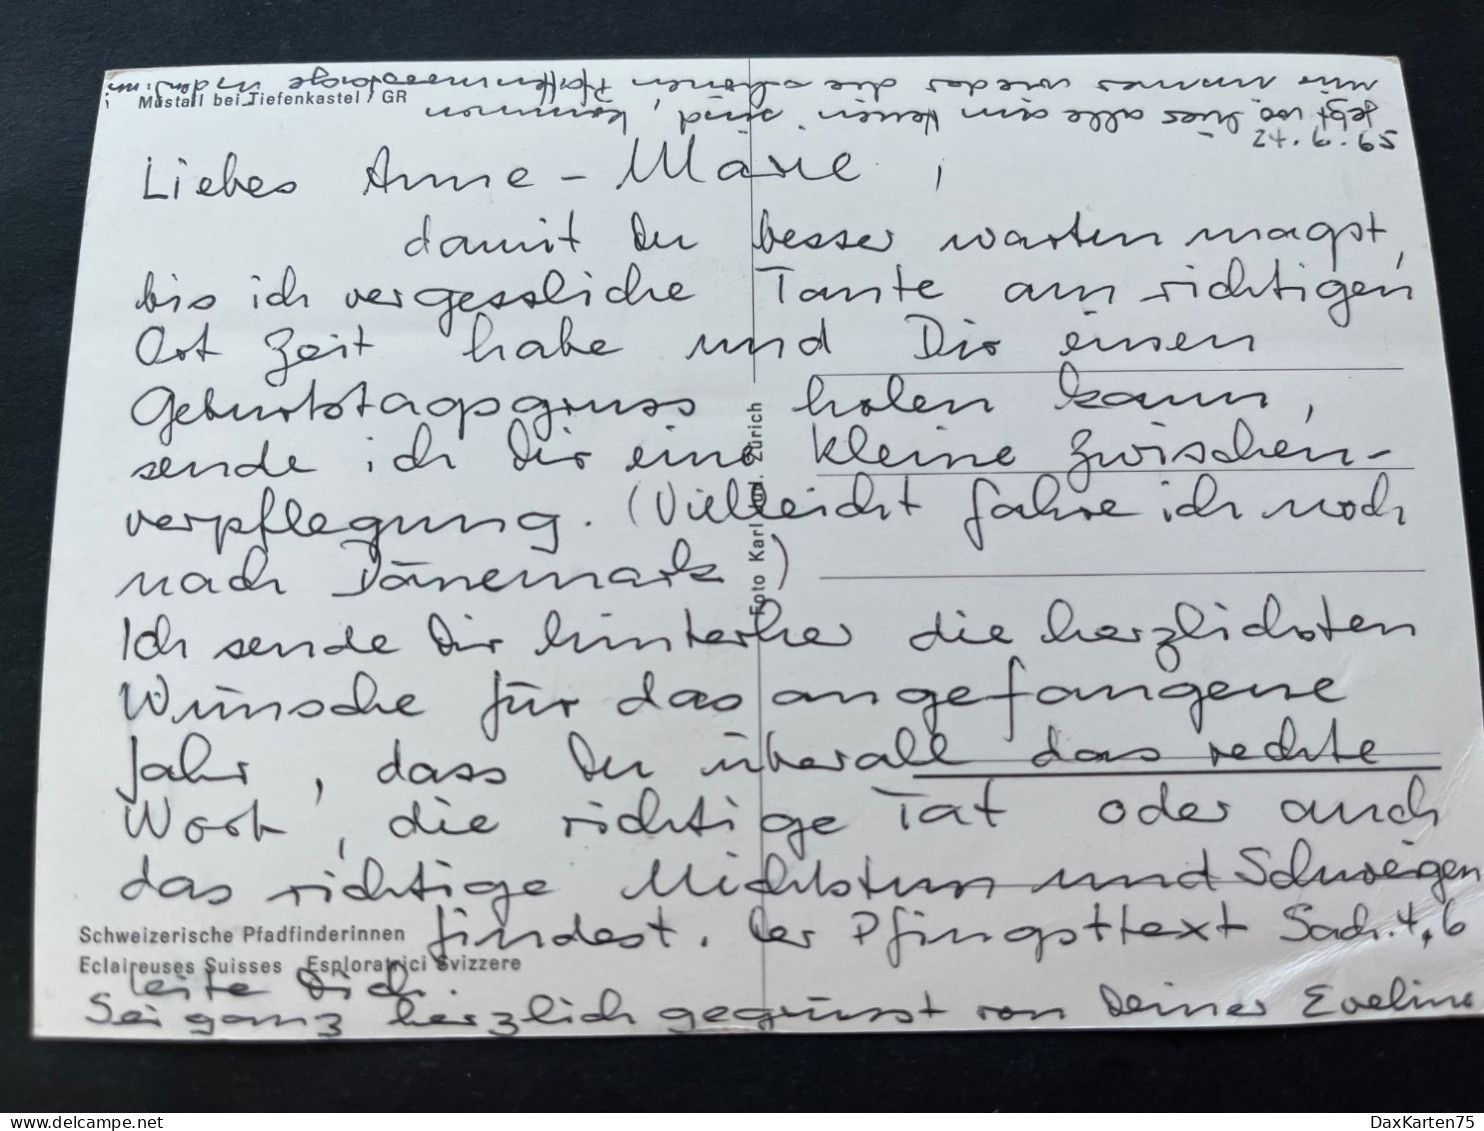 Mustail bei Tiefenkastel / GR
24.6.65
Liebes Anne-Marie,
damit Du besser warten magst,
bis ich vergessliche Tante am richtigen
Ort Zeit habe und Dir einen
Geburtstagsgruss holen kann,
sende ich Dir eine kleine Zwischen-
verpflegung. (Vielleicht fahre ich noch
nach Dänemark)
Ich sende Dir hinterher die herzlichsten
Wünsche für das angefangene
Jahr, dass Du überall das rechte
Wort, die richtige Tat oder auch
das richtige Nichtstun und Schweigen
findest. Der Pfingsttext Sach. 4,6
leite Dich.
Sei ganz herzlich gegrüsst von Deiner Eveline
jetzt wo hier alle am Heuen sind, kommen
mir immer wieder die schönen Pfaffenmoostage in den
Schweizerische Pfadfinderinnen
Eclaireuses Suisses Esploratrici Svizzere
Foto Karl Zürich
DaxKarten75